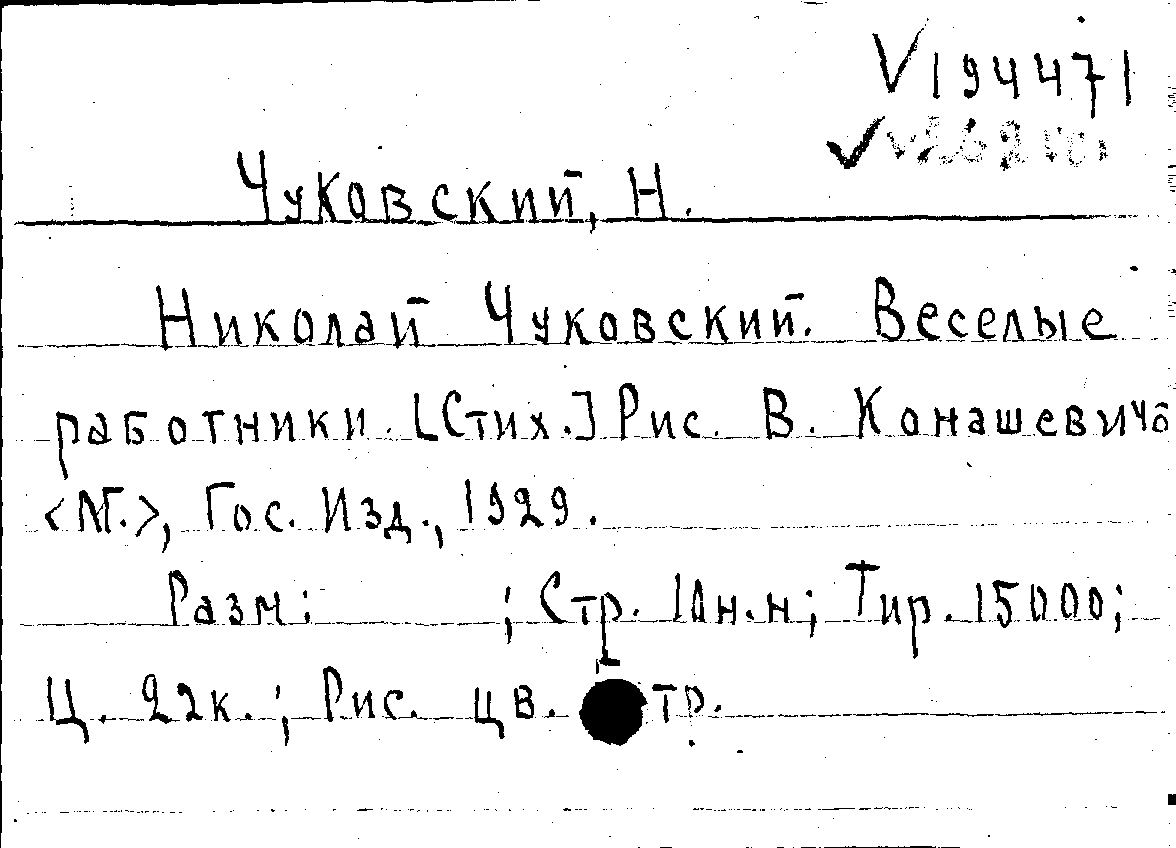 V194471
Чуковский, Н.
Николай Чуковский. Веселые
работники. [Стих.] Рис. В. Конашевича
<М.>, Гос. Изд., 1929.
Разм: ; Стр. 10н.н; Тир. 15000;
Ц. 22к.; Рис. цв.